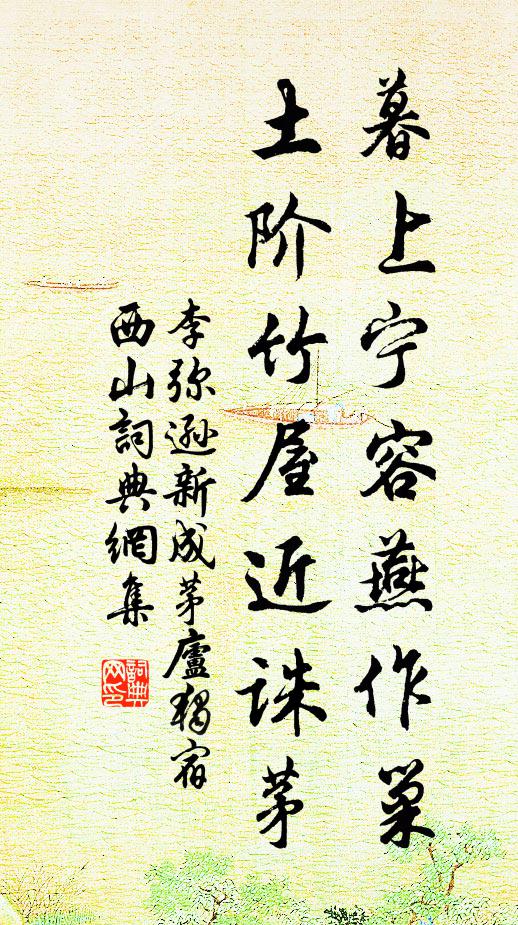 暮上宁容燕作巢
土阶竹屋近诛茅
李弥逊新成茅廬獨宿
西山詞典網集
詞典网印